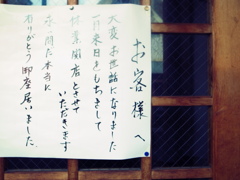 お客様へ
大変お世話になりました
月末日をもちまして
業閉店とさせて
いただきます
永い間本当に
ありがとう御座居ました